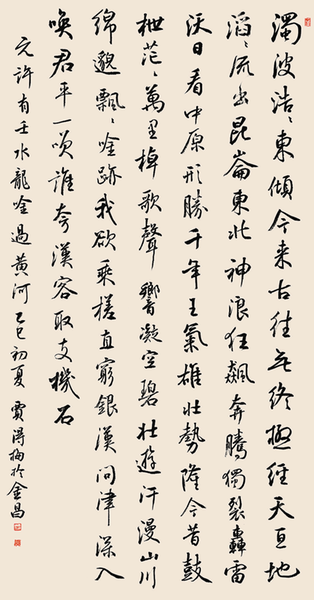 濁波浩〻東傾今来古往无終極經天亘地
滔〻流出崑崙東北神浪狂飆奔騰觸裂轟雷
沃日看中原形勝千年王氣雄壯勢隆今昔鼓
枻茫〻萬里棹歌聲響凝空碧壯遊汗漫山川
綿邈飄〻唫跡我欲乘槎直窮銀漢問津深入
喚君平一笑誰夸漢客取支機石
元許有壬水龍唫過黃河乙巳初夏賈得梅於金昌